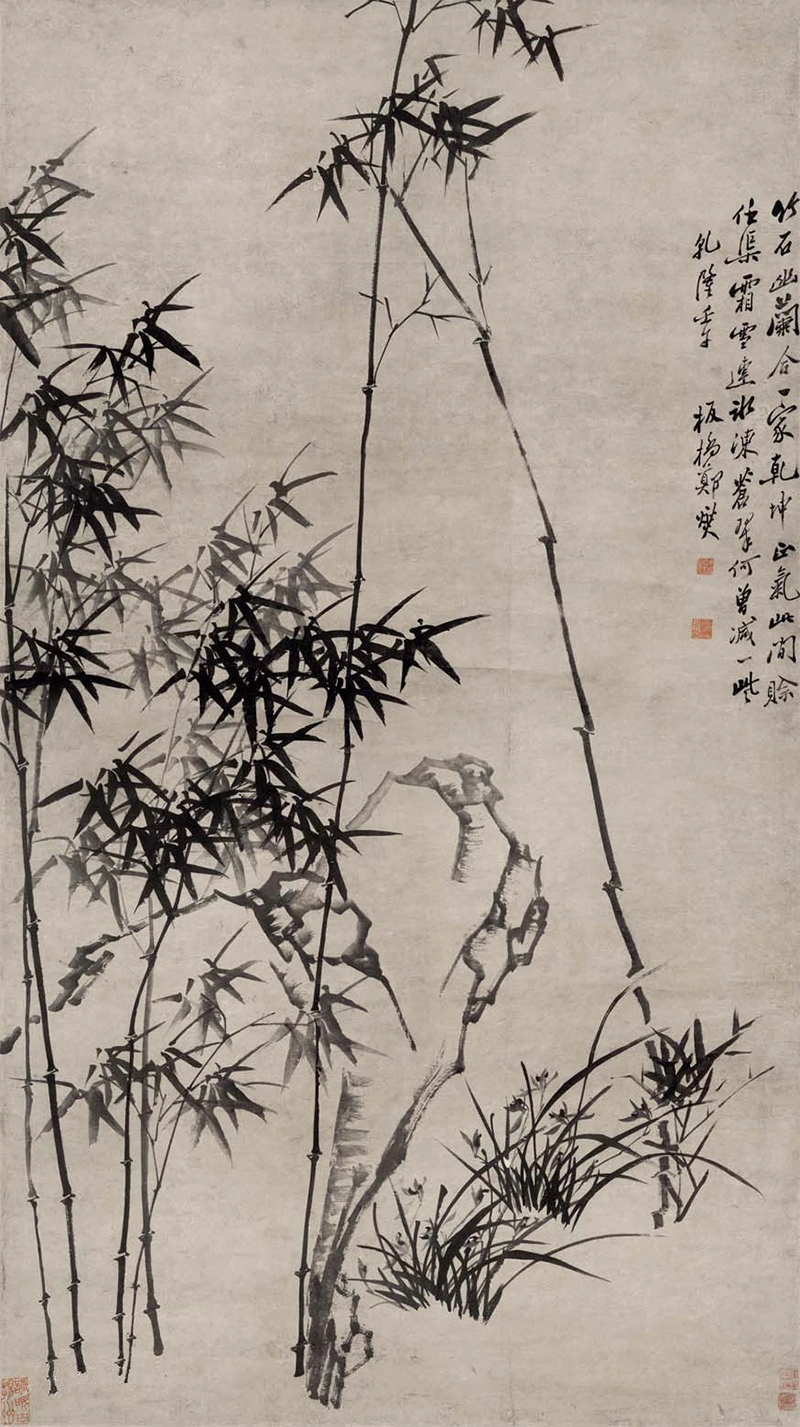 竹石幽蘭合一家乾坤正氣此間賒
任渠霜雪連冰凍蒼翠何曾減一些
乾隆壬午 板橋鄭燮